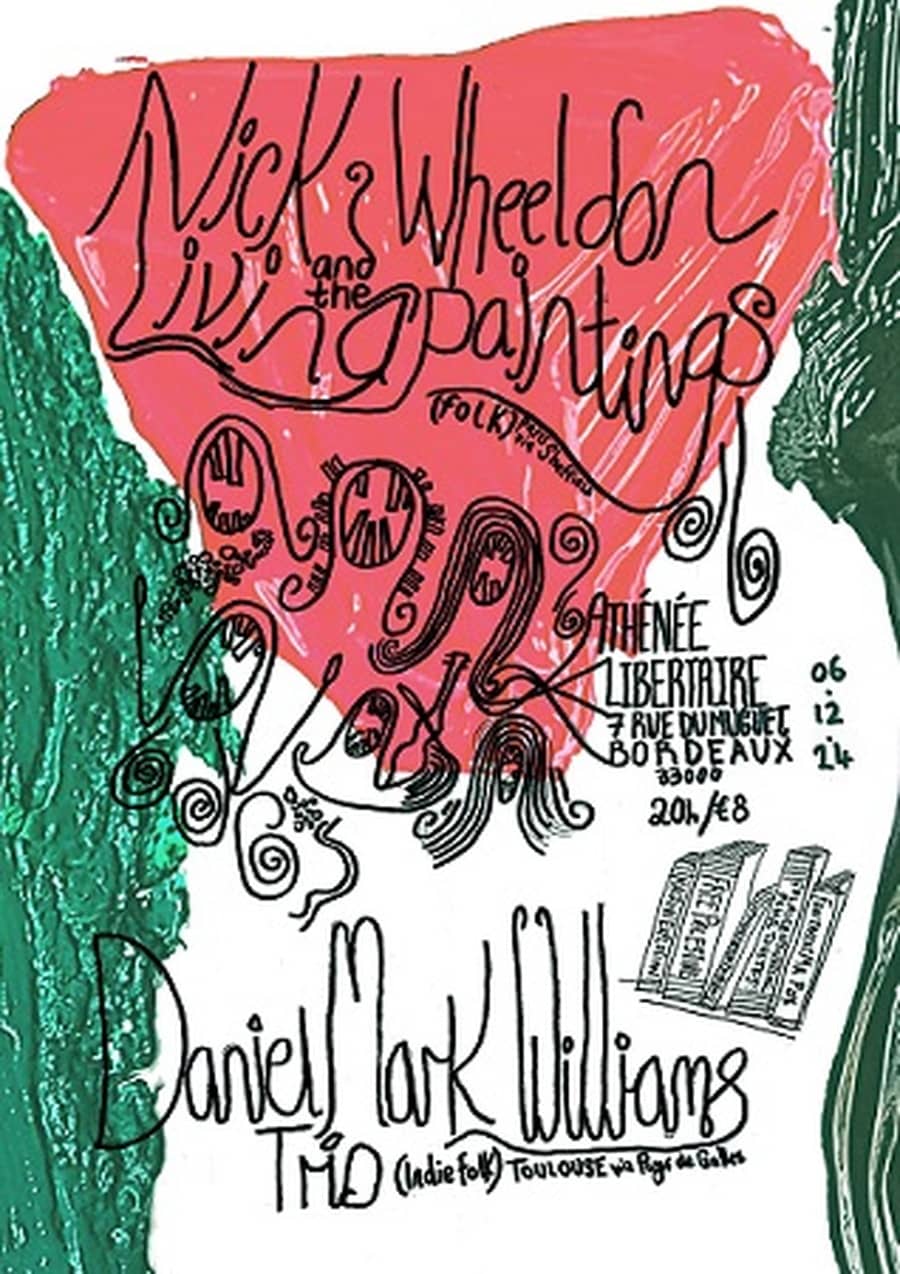 Nick Wheeldon
and the
Living Paintings
(Folk) Paris
via Sheffield
ATHÉNÉE
LIBERTAIRE
7 RUE DU MUGUET
BORDEAUX
33000
06
.
12
.
24
20h/€8
FREE PALESTINE
Daniel Mark Williams
Trio (Indie Folk) TOULOUSE via Pays de Galles